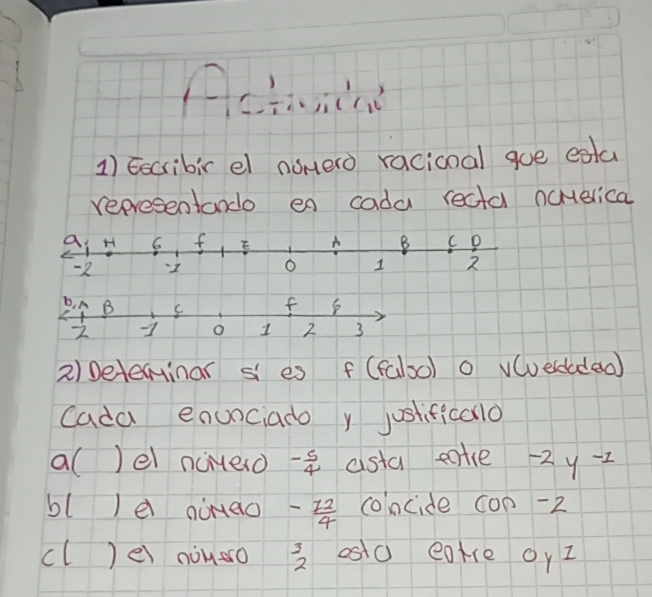 Actividad
1) Escribir el número racional que esta
representando en cada recta numerica
a, H G f E A B C D
-2 -1 0 1 2
b, A B C f g
-2 -1 0 1 2 3
2) Determinar si es f (falso) o v (verdadero)
Cada enunciado y justificarlo
a( ) el número -5/4 asta entre -2 y -1
b( ) el número -12/4 coincide con -2
c( ) el número 3/2 esta entre 0 y 1